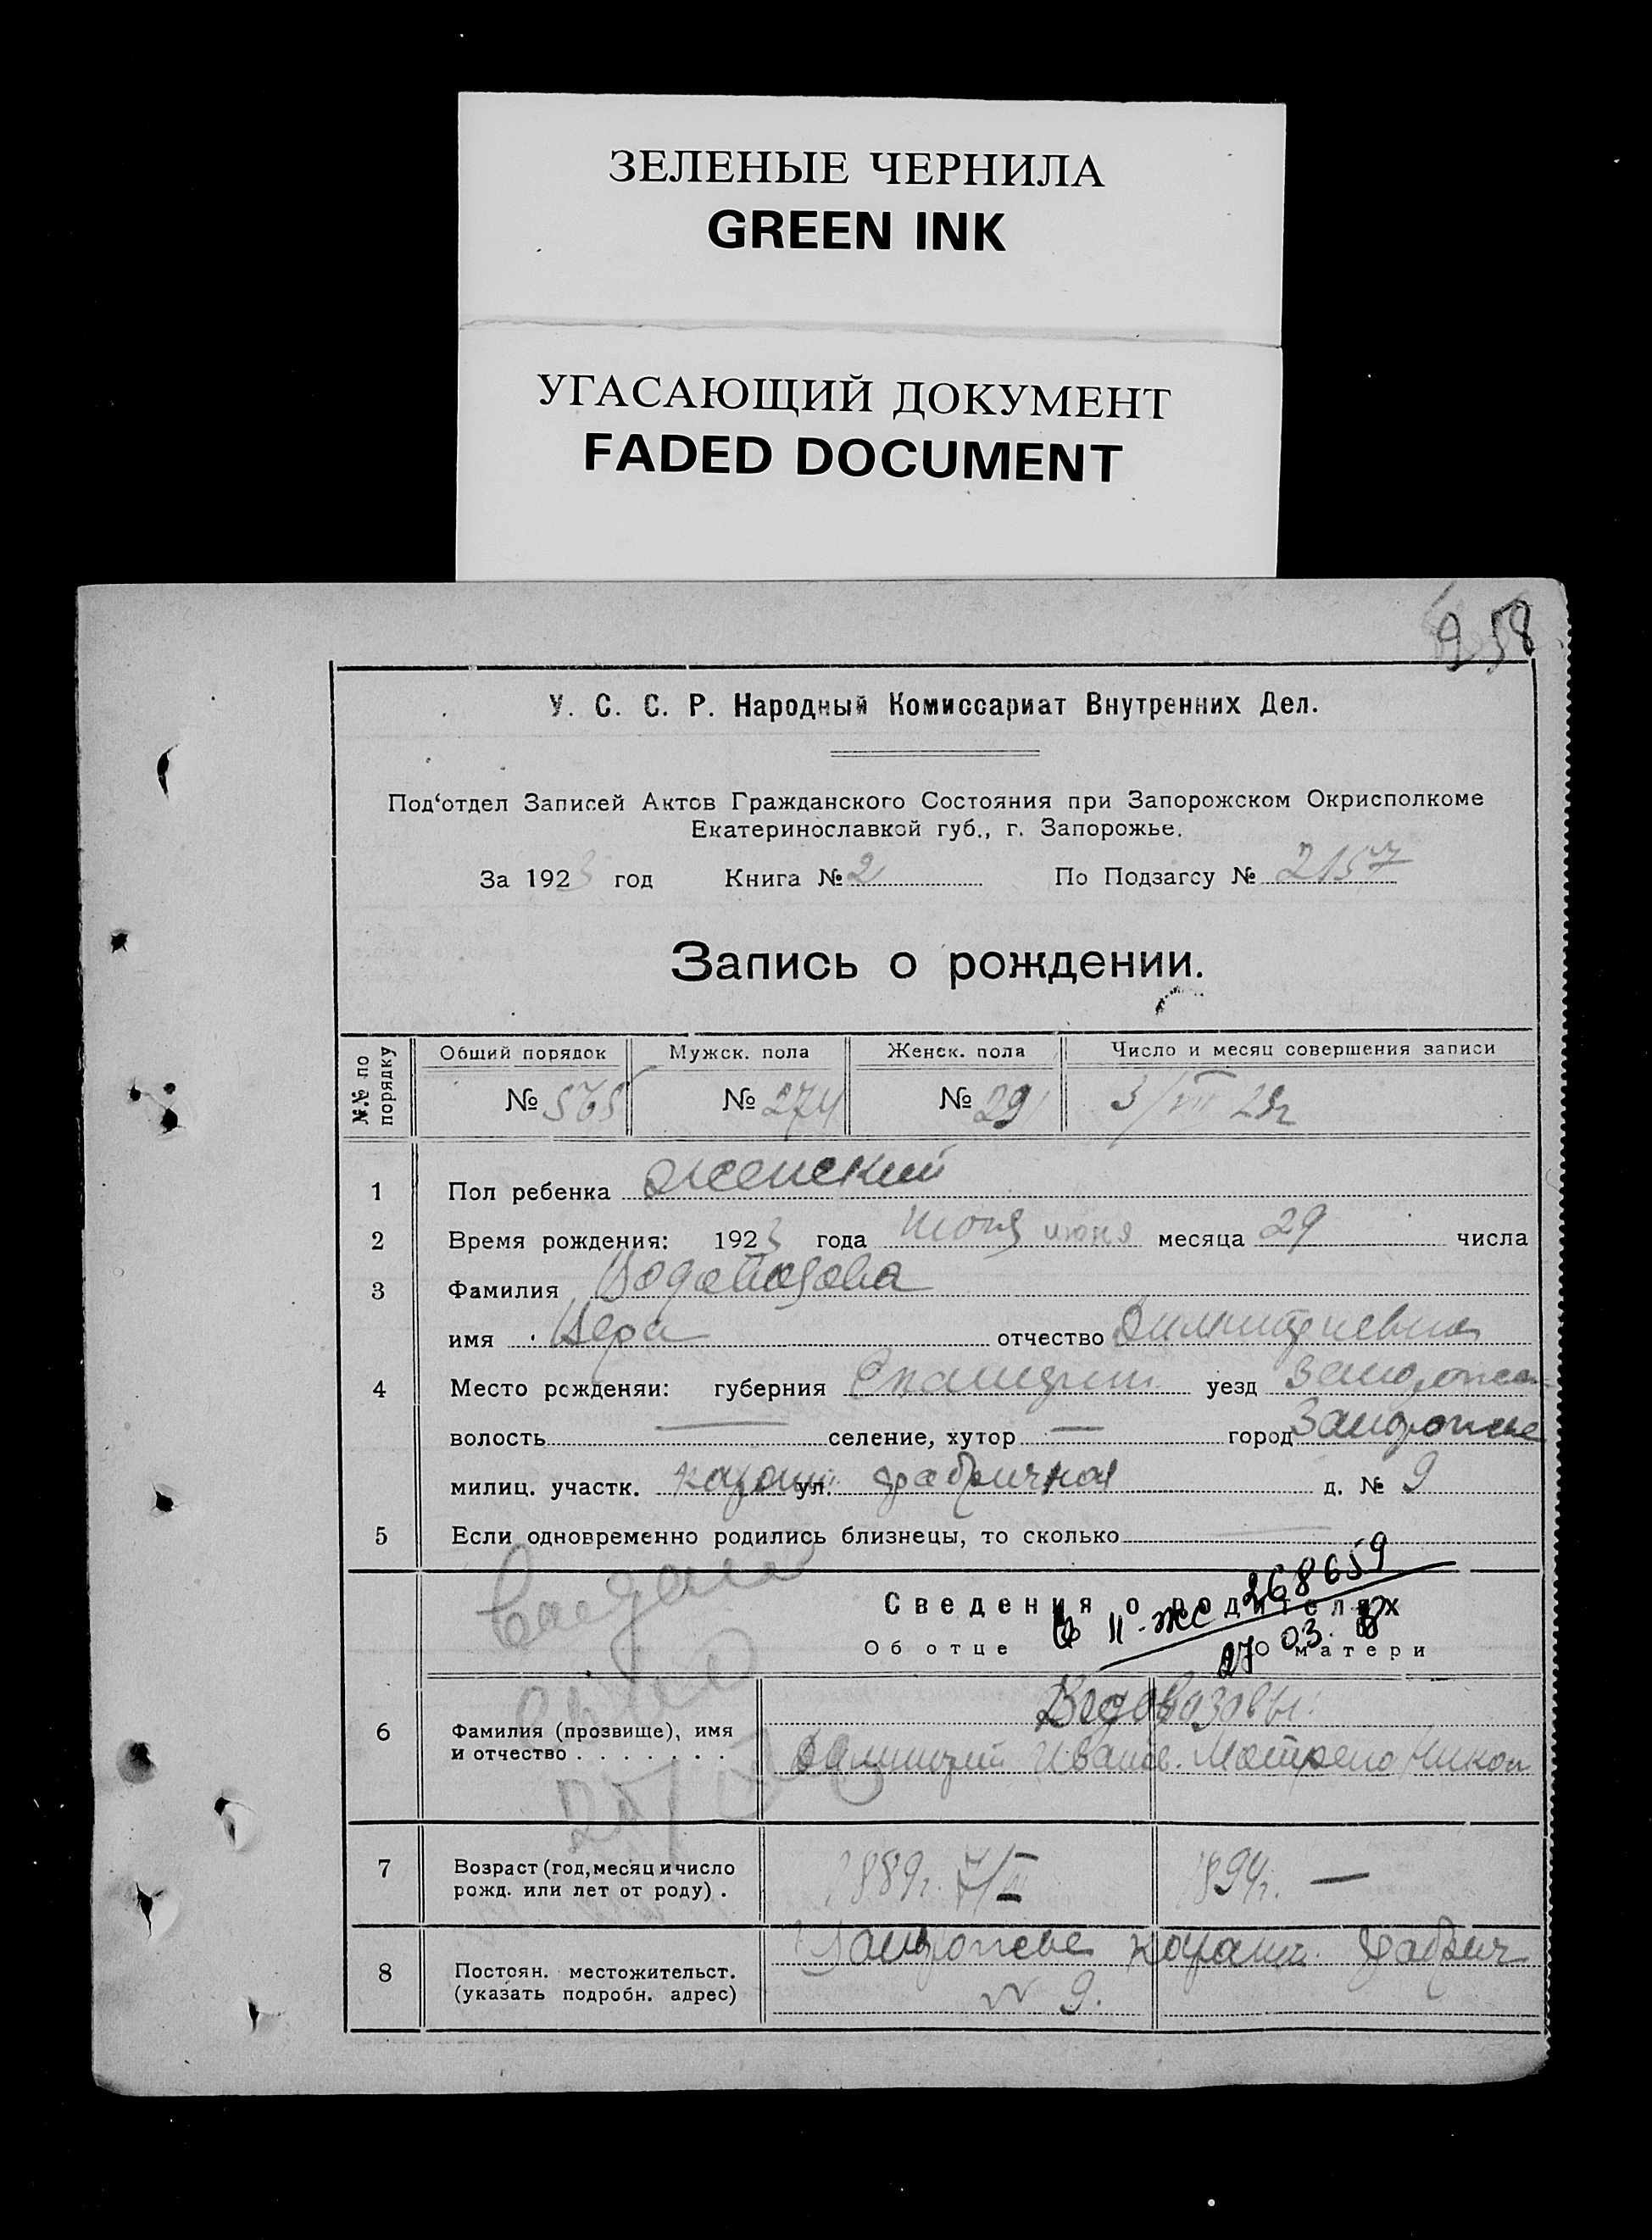 ЗЕЛЕНЫЕ ЧЕРНИЛА
GREEN INK
УГАСАЮЩИЙ ДОКУМЕНТ
FADED DOCUMENT
258
У. С. С. Р. Народный Комиссариат Внутренних Дел.
Под'отдел Записей Актов Гражданского Состояния при Запорожском Окрисполкоме
Екатеринославкой губ., г. Запорожье.
За 1923 год Книга № 2 По Подзагсу № 2157
Запись о рождении.
№№ по порядку Общий порядок Мужск. пола Женск. пола Число и месяц совершения записи
№ 565 № 274 № 291 3/VII 23г
1 Пол ребенка женский
2 Время рождения: 1923 года июня июня месяца 29 числа
3 Фамилия Водовозова
имя Вера отчество Димитриевна
4 Место рожденяи: губерния уезд Запорожск
волость — селение, хутор — город Запорожье
милиц. участк. ул. фабричная д. № 9
5 Если одновременно родились близнецы, то сколько
Сведения о родителях
II-ЖС 268659
Об отце О матери
27 03.
6 Фамилия (прозвище), имя и отчество . . . . . . .
Водовозовы.
Димитрий Иванов. Матрена Никол
7 Возраст (год, месяц и число рожд. или лет от роду) .
1889г. 1894г. —
8 Постоян. местожительст. (указать подробн. адрес)
Запорожье Фабрич
№ 9.